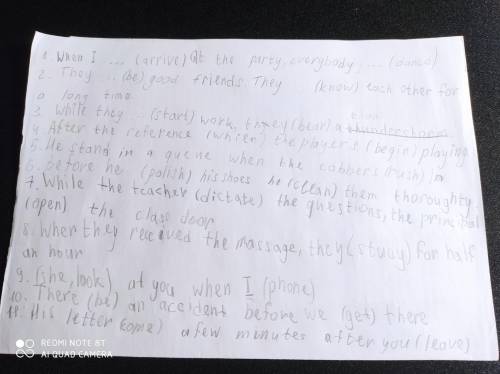 1. When I .... (arrive) at the party, everybody ... (dance)
2. They .. (be) good friends. They .. (know) each other for
a long time
3. While they .. (start) work, they (hear) a
4. After the reference (when) the players (begin) playing
5. He stand in a queue when the robbers (rush) in
6. before he (polish) his shoes he (clean) them thoroughty
7. While the teacher (dictate) the questions, the principal
(open) the class door
8. When they received the massage, they (study) for half
an hour
9. (she, look) at you when I (phone)
10. There (be) an accident before we (get) there
11. His letter (come) a few minutes after you (leave)
REDMI NOTE 8T
AI QUAD CAMERA